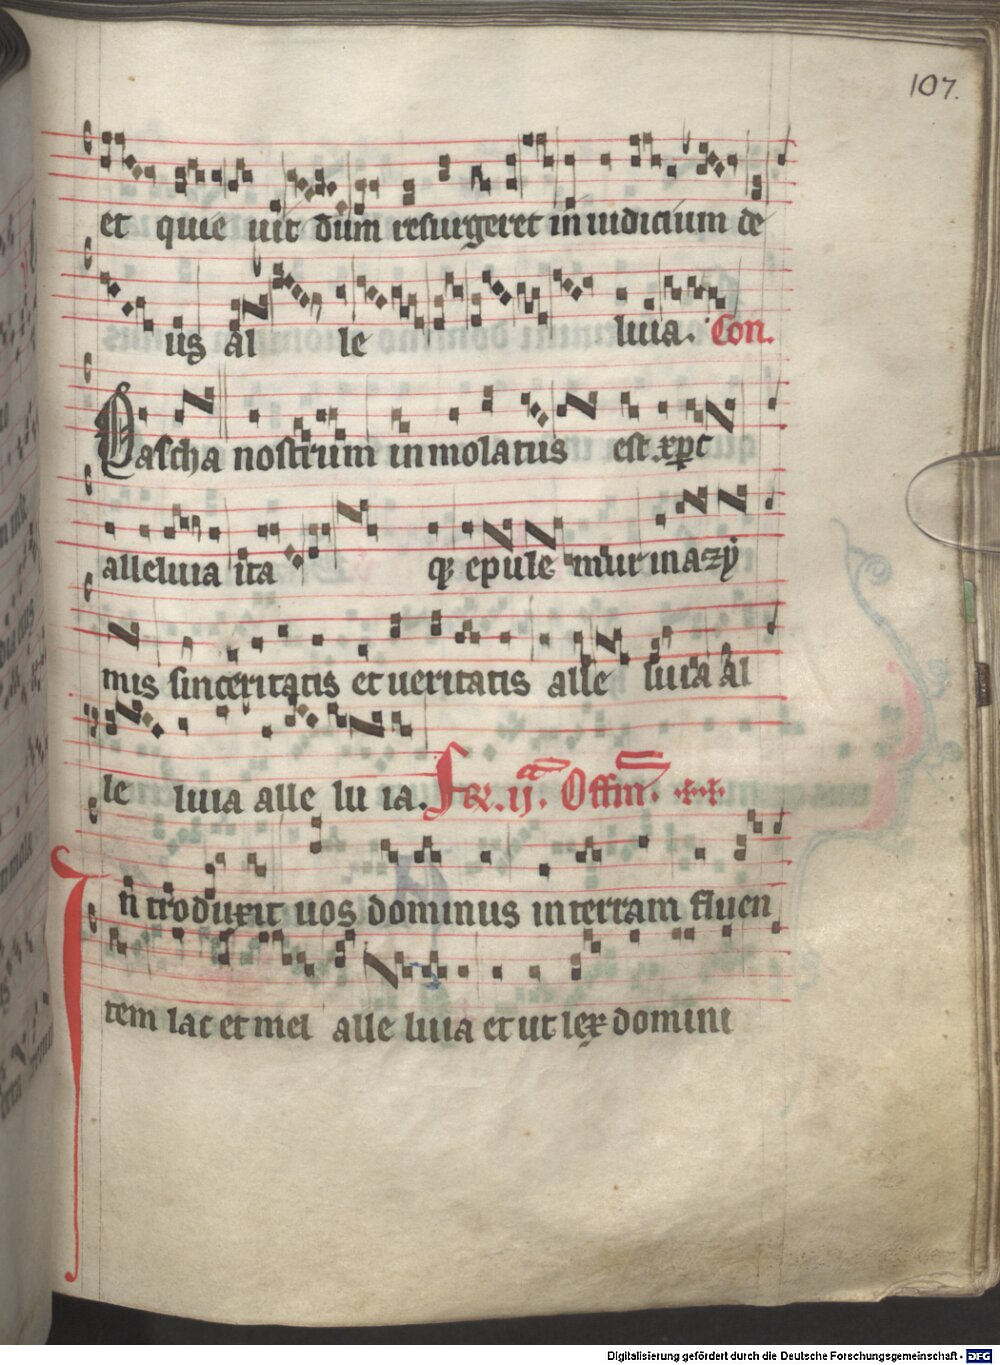 107.
et quie uit dum resurgeret in iudicium de
us al le luia. Con.
Pascha nostrum inmolatus est xpc
alleluia ita qꝫ epule mur in azy
mis sinceritatis et ueritatis alle luia al
le luia alle lu ia. Fer. ij. Offm.
In troduxit uos dominus in terram fluen
tem lac et mel alle luia et ut lex domini
Digitalisierung gefördert durch die Deutsche Forschungsgemeinschaft - DFG